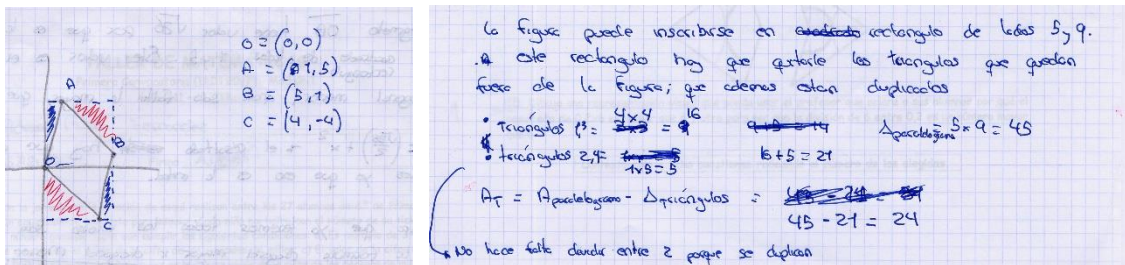 O = (0,0)
A = (1,5)
B = (5,1)
C = (4,-4)
A
B
O
C
La figura puede inscribirse en rectangulo de lados 5 y 9.
A este rectangulo hay que quitarle los triangulos que quedan
fuera de la figura; que ademas estan duplicados
• Triángulos 1,3 = 4x4 = 16
• triángulos 2,4 = 1x5=5
16+5=21
= 5x9 = 45
A_T = A - triángulos =
45-21 = 24
No hace falta dividir entre 2 porque se duplican